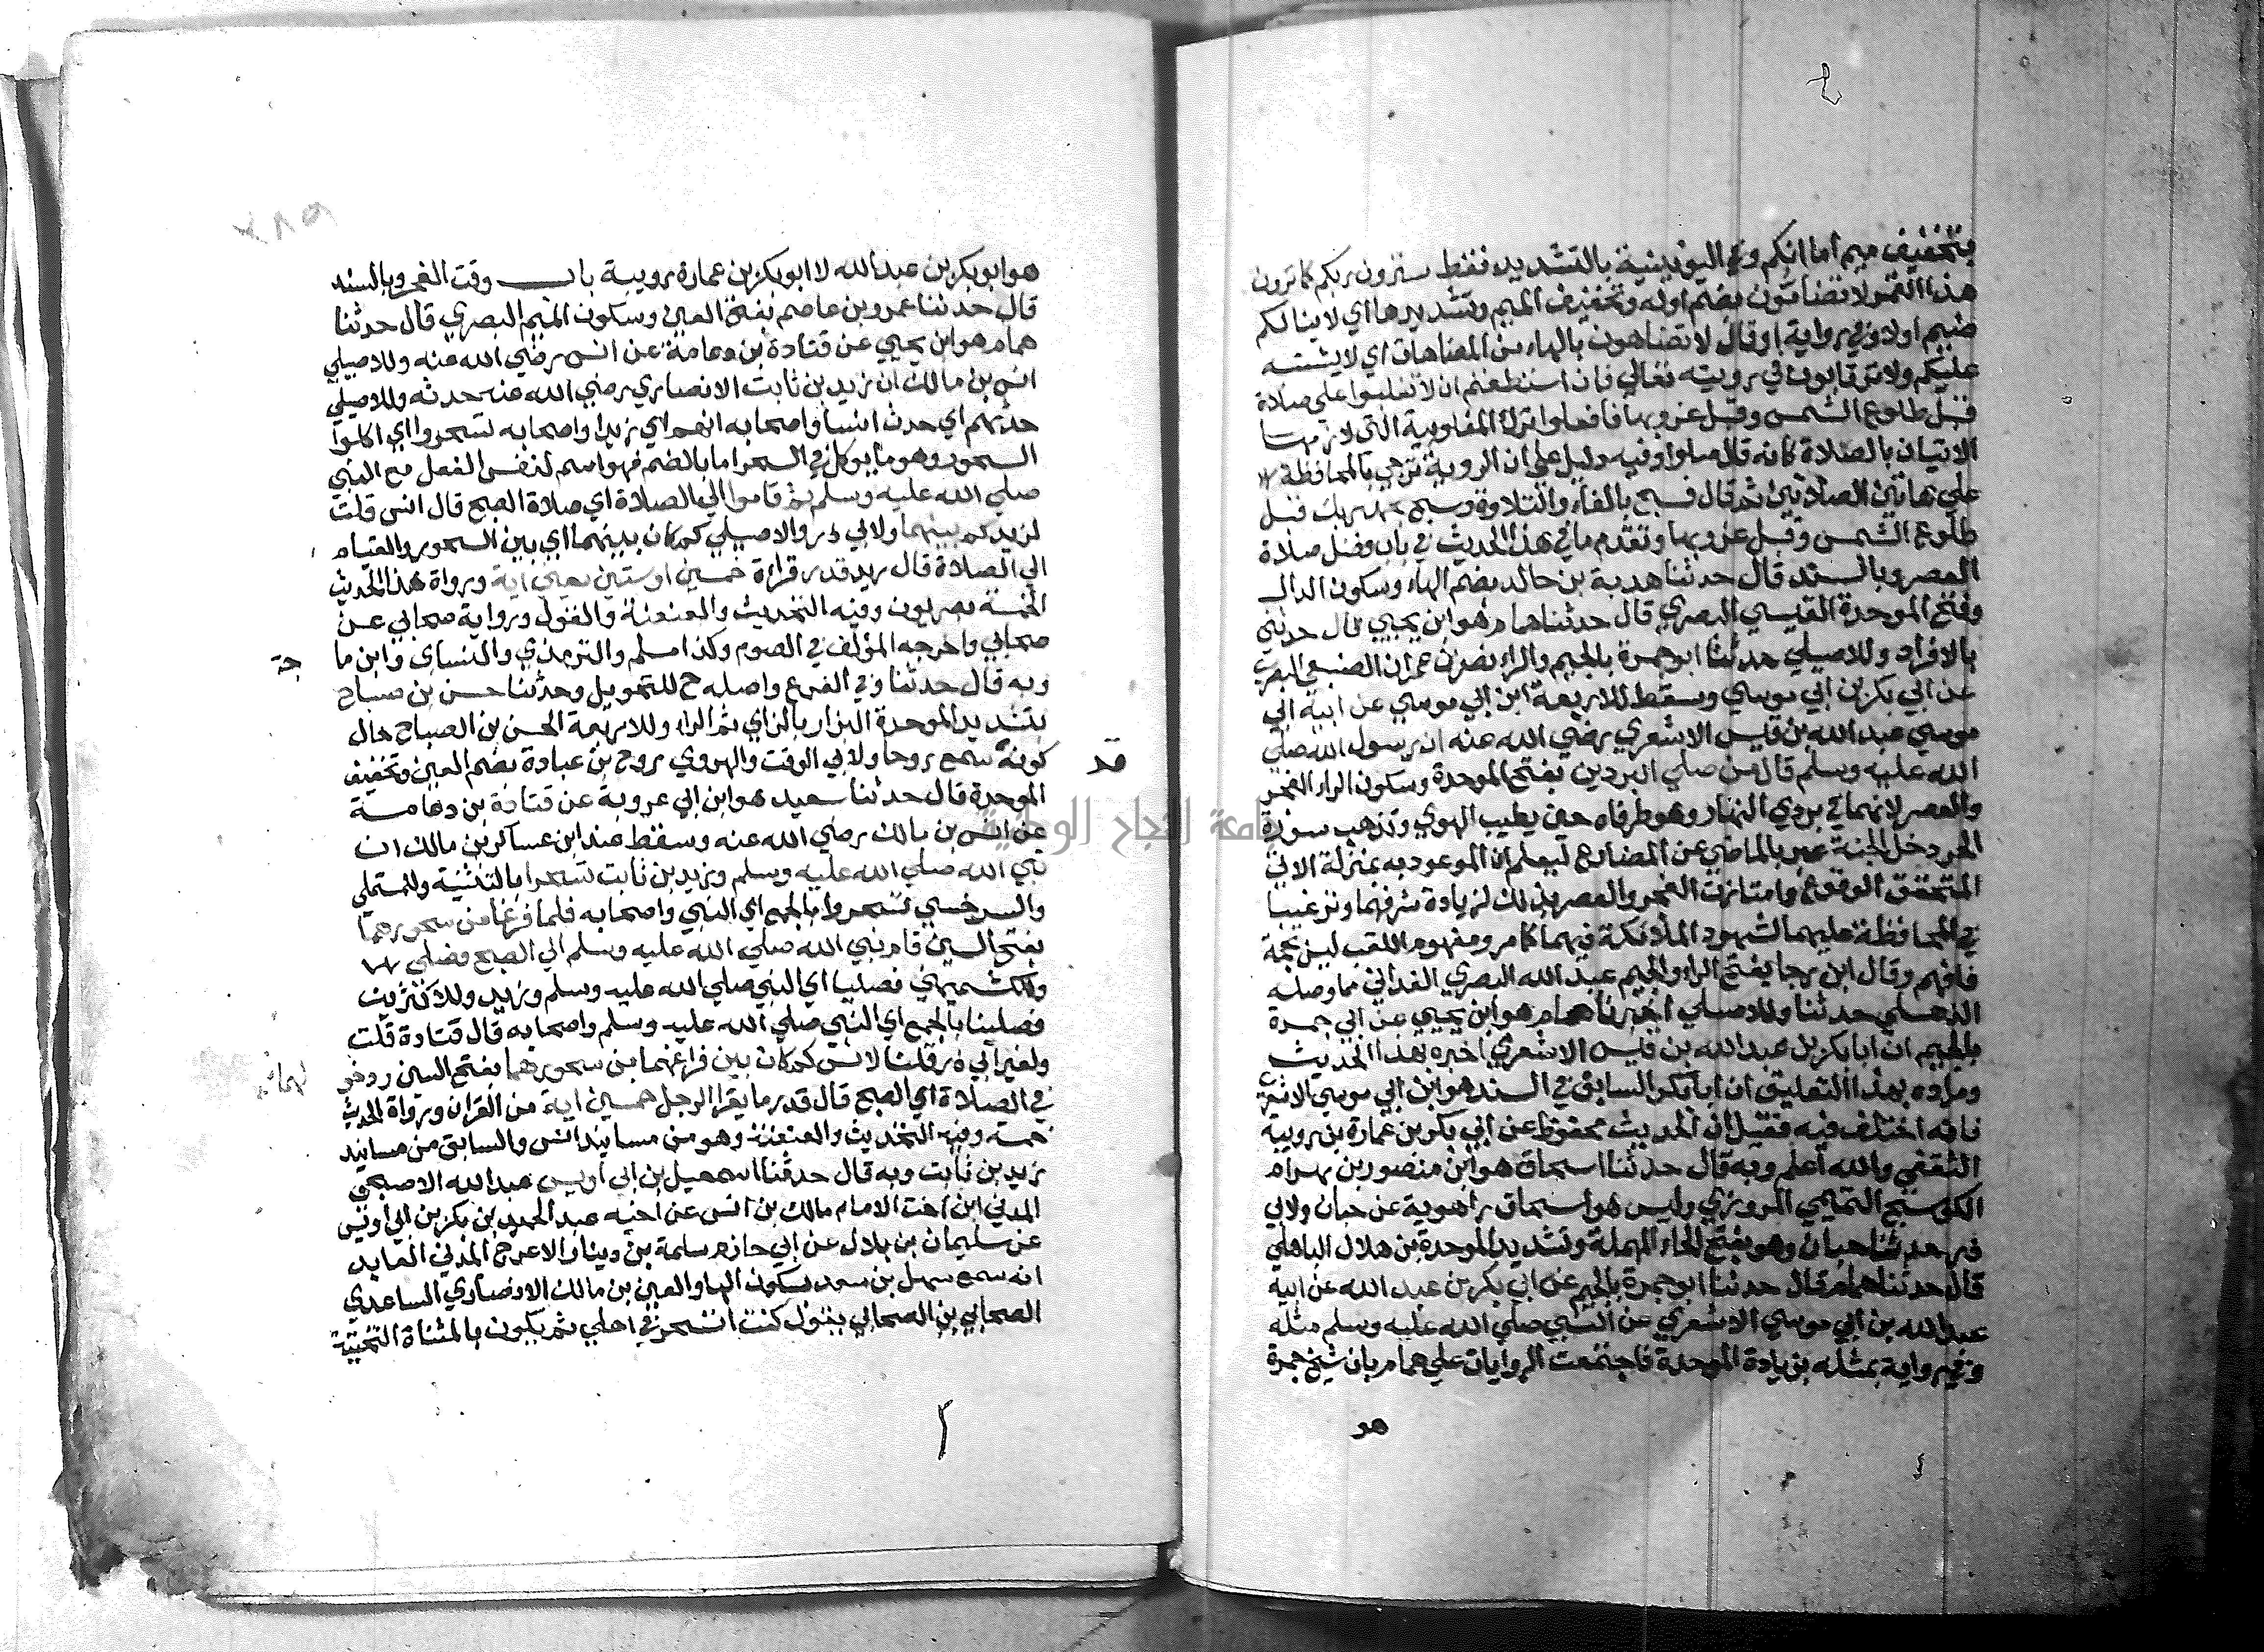 بتخفيف ميم أما انكم وفي اليونينية بالتشديد فقط سترون ربكم كما ترون
هذا القمر لا تضامون بضم اوله وتخفيف الميم وتشديدها اي لا ينالكم
ضيم اولا وفي رواية او قال لا تضاهون بالهاء من المضاهات اي لا يشتبه
عليكم ولا ترتابون في رويته تعالي فان استطعتم ان لا تغلبوا علي صلاة
قبل طلوع الشمس وقبل غروبها فافعلوا ترك المغلوبية التي لازمها
الاتيان بالصلاة كانه قال صلوا وفيه دليل علي ان الروية ترجي بالمحافظة
علي هاتين الصلاتين ثم قال فسبح بالفاء والتلاوة وسبح بحمد ربك قبل
طلوع الشمس وقبل غروبها وتقدم ما في هذا الحديث في باب فضل صلاة
العصر وبالسند قال حدثنا هدبة بن خالد بضم الهاء وسكون الدال
وفتح الموحدة القيسي البصري قال حدثنا همام هو ابن يحيي قال حدثني
بالافراد وللاصيلي حدثنا ابو جمرة بالجيم والراء نصر بن عمران الضبعي البصري
عن ابي بكر بن ابي موسي وسقط للاربعة ابن ابي موسي عن ابيه ابي
موسي عبد الله بن قيس الاشعري رضي الله عنه ان رسول الله صلي
الله عليه وسلم قال من صلي البردين بفتح الموحدة وسكون الراء الفجر
والعصر لانهما في بردي النهار وهو طرفاه حين يطيب الهوي وتذهب سورة
الحر دخل الجنة عبر بالماضي عن المضارع ليعلم ان الموعود به بمنزلة الاتي
المتحقق الوقوع وامتازت الفجر والعصر بذلك لزيادة شرفهما وترغيبا
في المحافظة عليهما لشهود الملائكة فيهما كما مر ومفهوم اللقب ليس بحجة
فافهم وقال ابن رجا بفتح الراء والجيم عبد الله البصري الغداني مما وصله
الذهلي حدثنا وللاصيلي اخبرنا همام هو ابن يحيي عن ابي جمرة
بالجيم ان ابا بكر بن عبد الله بن قيس الاشعري اخبره بهذا الحديث
ومراده بهذا التعليق ان ابا بكر السابق في السند هو ابن ابي موسي الاشعري
فانه اختلف فيه فقيل ان الحديث محفوظ عن ابي بكر بن عمارة بن رويبة
الثقفي والله اعلم وبه قال حدثنا اسحاق هو ابن منصور بن بهرام
الكوسج التميمي المروزي وليس هو اسحاق بن راهوية عن حبان ولابي
ذر حدثنا حبان وهو بفتح الحاء المهملة وتشديد الموحدة بن هلال الباهلي
قال حدثنا همام قال حدثنا ابو جمرة بالجيم عن ابي بكر بن عبد الله عن ابيه
عبد الله بن ابي موسي الاشعري عن النبي صلي الله عليه وسلم مثله
وفي رواية بمثله بزيادة الموحدة فاجتمعت الروايات علي همام بان شيخ جمرة
هو
هو ابو بكر بن عبد الله لا ابو بكر بن عمارة رويبة باب وقت الفجر وبالسند
قال حدثنا عمرو بن عاصم بفتح العين وسكون الميم البصري قال حدثنا
همام هو ابن يحيي عن قتادة بن دعامة عن انس رضي الله عنه وللاصيلي
انس بن مالك ان زيد بن ثابت الانصاري رضي الله عنه حدثه وللاصيلي
حدثهم اي حدث انسا واصحابه انهم اي زيدا واصحابه تسحروا اي اكلوا
السحور وهو ما يوكل في السحر اما بالضم فهو اسم لنفس الفعل مع النبي
صلي الله عليه وسلم ثم قاموا الي الصلاة اي صلاة الصبح قال انس قلت
لزيد كم بينهما ولابي ذر والاصيلي كم كان بينهما اي بين السحور والقيام
الي الصلاة قال زيد قدر قراءة خمسين او ستين يعني اية ورواة هذا الحديث
الخمسة بصريون وفيه التحديث والعنعنة والقول ورواية صحابي عن
صحابي واخرجه المؤلف في الصوم وكذا مسلم والترمذي والنساي وابن ما
جة
وبه قال حدثنا وفي الفرع واصله ح للتحويل وحدثنا حسن بن صباح
بتشديد الموحدة البزار بالزاي ثم الراء وللاربعة الحسن بن الصباح حال
كونه سمع روحا ولابي الوقت والهروي روح بن عبادة بضم العين وتخفيف
قد
الموحدة قال حدثنا سعيد هو ابن ابي عروبة عن قتادة بن دعامة
عن انس بن مالك رضي الله عنه وسقط عند ابن عساكر بن مالك ان
نبي الله صلي الله عليه وسلم وزيد بن ثابت تسحرا بالتثنية وللمستملي
والسرخسي تسحروا بالجمع اي النبي واصحابه فلما فرغا من سحورهما
بفتح السين قام نبي الله صلي الله عليه وسلم الي الصبح فصلي
وللكشميهني فصليا اي النبي صلي الله عليه وسلم وزيد وللاكثرين
فصلينا بالجمع اي النبي صلي الله عليه وسلم واصحابه قال قتادة قلت
ولغير ابي ذر قلنا لانس كم كان بين فراغهما من سحورهما بفتح السين ودخو
لهما
في الصلاة اي الصبح قال قدر ما يقرا الرجل خمسين اية من القران ورواة الحديث
خمسة وفيه التحديث والعنعنة وهو من مسانيد انس والسابق من مسانيد
زيد بن ثابت وبه قال حدثنا اسمعيل بن ابي اويس عبد الله الاصبحي
المدني ابن اخت الامام مالك بن انس عن اخيه عبد الحميد بن بكر بن ابي اويس
عن سليمان بن بلال عن ابي حازم سلمة بن دينار الاعرج المدني العابد
انه سمع سهل بن سعد بسكون الهاء والعين بن مالك الانصاري الساعدي
الصحابي بن الصحابي يقول كنت اتسحر في اهلي ثم يكون بالمثناة التحتية
جامعة النجاح الوطنية